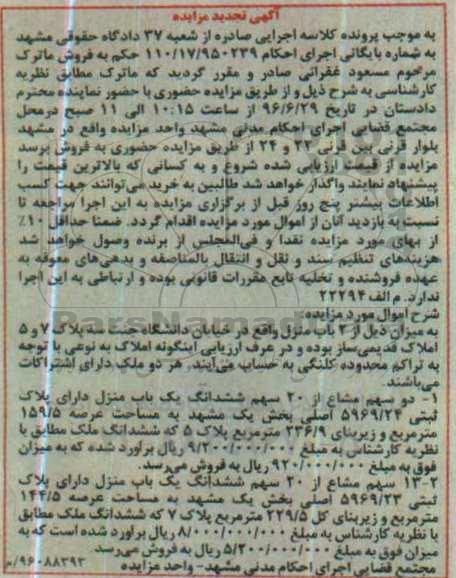 آگهی تجدید مزایده
به موجب پرونده کلاسه اجرایی صادره از شعبه ۳۷ دادگاه حقوقی مشهد
به شماره بایگانی اجرای احکام ۱۱۰/۱۷/۹۵۰۲۳۹ حکم به فروش ماترک
مرحوم مسعود غفرانی صادر و مقرر گردید که ماترک مطابق نظریه
کارشناسی به شرح ذیل و از طریق مزایده حضوری با حضور نماینده محترم
دادستان در تاریخ ۹۶/۶/۲۹ از ساعت ۱۰:۱۵ الی ۱۱ صبح درمحل
مجتمع قضایی اجرای احکام مدنی مشهد واحد مزایده واقع در مشهد
بلوار قرنی بین قرنی ۲۲ و ۲۴ از طریق مزایده حضوری به فروش برسد
مزایده از قیمت ارزیابی شده شروع و به کسانی که بالاترین قیمت را
پیشنهاد نمایند واگذار خواهد شد طالبین به خرید می‌توانند جهت کسب
اطلاعات بیشتر پنج روز قبل از برگزاری مزایده به این اجرا مراجعه تا
نسبت به بازدید آنان از اموال مورد مزایده اقدام گردد. ضمنا حداقل ۱۰٪
از بهای مورد مزایده نقدا و فی‌المجلس از برنده وصول خواهد شد
هزینه‌های تنظیم سند و نقل و انتقال بالمناصفه و بدهی‌های معوقه به
عهده فروشنده و تخلیه تابع مقررات قانونی بوده و ارتباطی به این اجرا
ندارد. م الف ۲۲۲۹۴
شرح اموال مورد مزایده:
به میزان ذیل از ۲ باب منزل واقع در خیابان دانشگاه جنت سه پلاک ۷ و ۵
املاک قدیمی‌ساز بوده و در عرف ارزیابی اینگونه املاک به نوعی با توجه
به تراکم محدوده کلنگی به حساب می‌آیند. هر دو ملک دارای اشتراکات
می‌باشند.
۱- دو سهم مشاع از ۲۰ سهم ششدانگ یک باب منزل دارای پلاک
ثبتی ۵۹۶۹/۲۴ اصلی بخش یک مشهد به مساحت عرصه ۱۵۹/۵
مترمربع و زیربنای ۲۳۶/۹ مترمربع پلاک ۵ که ششدانگ ملک مطابق با
نظریه کارشناس به مبلغ ۹/۲۰۰/۰۰۰/۰۰۰ ریال برآورد شده که به میزان
فوق به مبلغ ۹۲۰/۰۰۰/۰۰۰ ریال به فروش می‌رسد.
۲-۱۳ سهم مشاع از ۲۰ سهم ششدانگ یک باب منزل دارای پلاک
ثبتی ۵۹۶۹/۲۳ اصلی بخش یک مشهد به مساحت عرصه ۱۴۴/۵
مترمربع و زیربنای کل ۲۲۹/۵ مترمربع پلاک ۷ که ششدانگ ملک مطابق
با نظریه کارشناس به مبلغ ۸/۰۰۰/۰۰۰/۰۰۰ ریال برآورد شده است که به
میزان فوق به مبلغ ۵/۲۰۰/۰۰۰/۰۰۰ ریال به فروش می‌رسد
مجتمع قضایی اجرای احکام مدنی مشهد- واحد مزایده
۹۶۰۸۸۳۹۳/م
ParsNamad